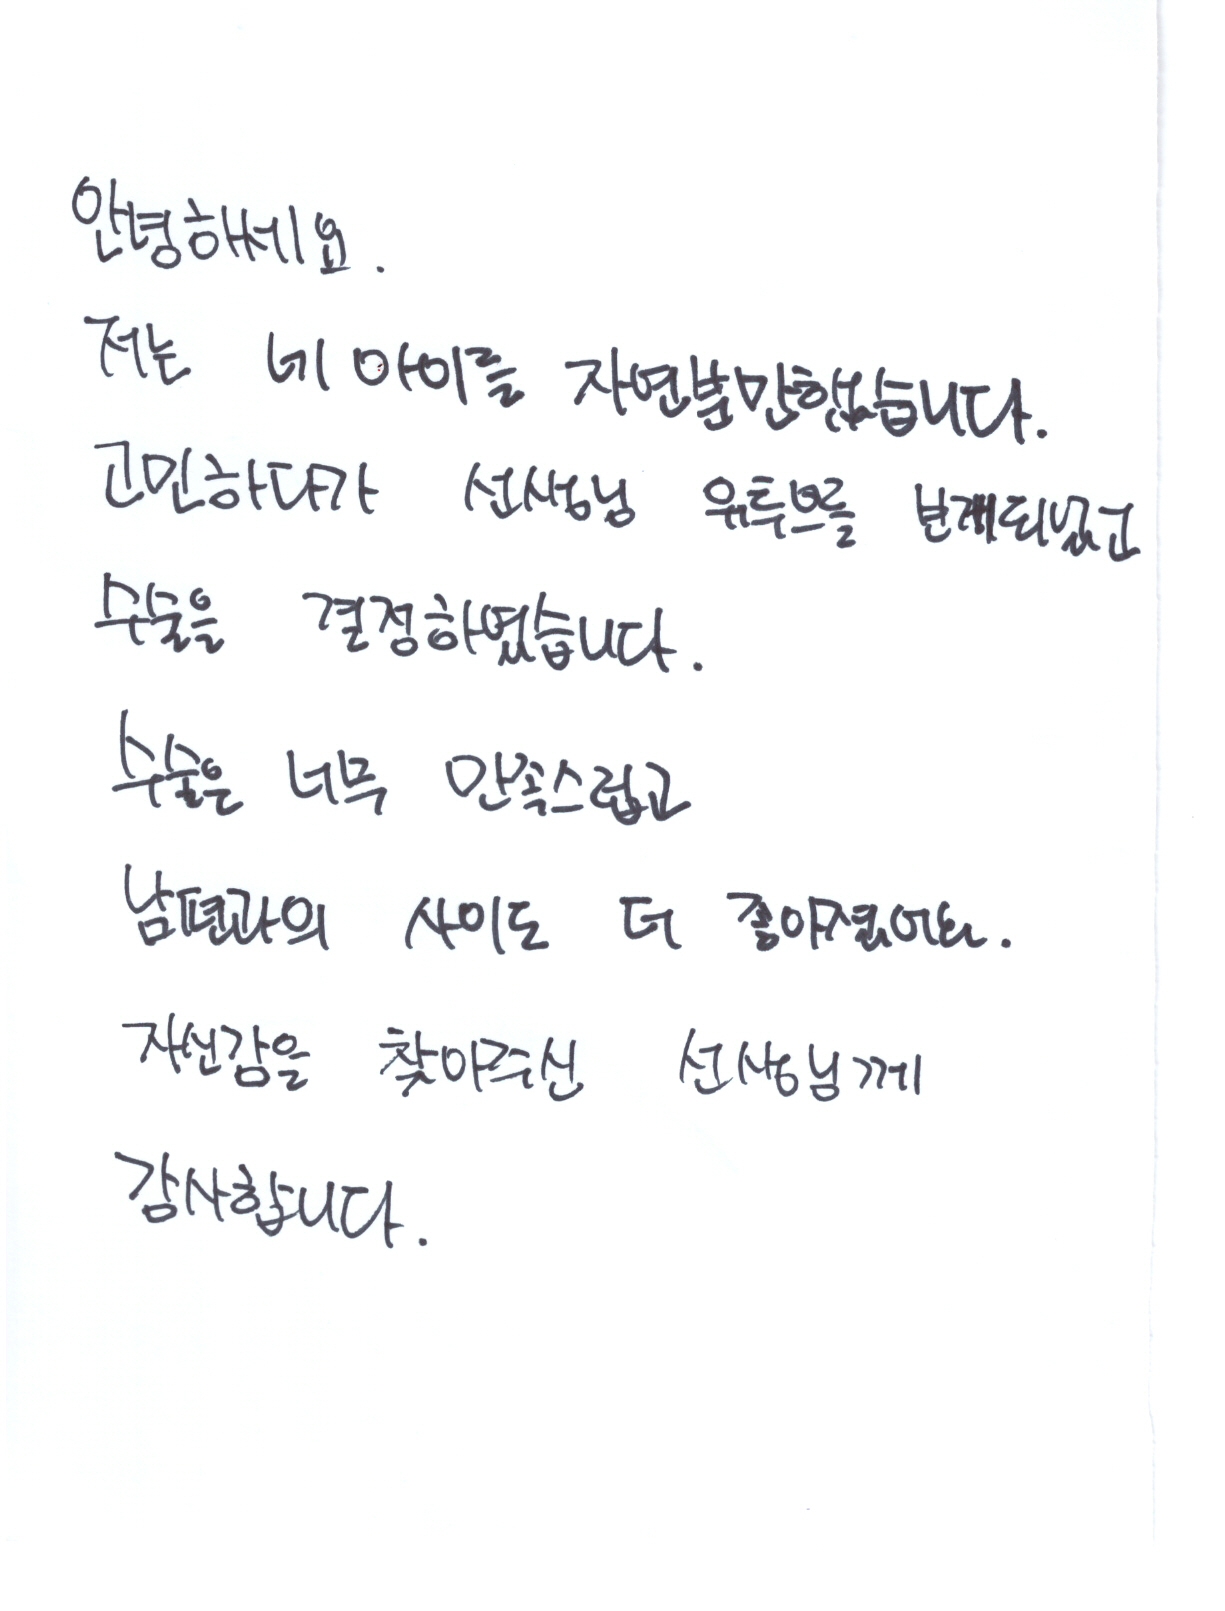 안녕하세요.
저는 네 아이를 자연분만했습니다.
고민하다가 선생님 유투브를 보게되었고
수술을 결정하였습니다.
수술은 너무 만족스럽고
남편과의 사이도 더 좋아졌어요.
자신감을 찾아주신 선생님께
감사합니다.